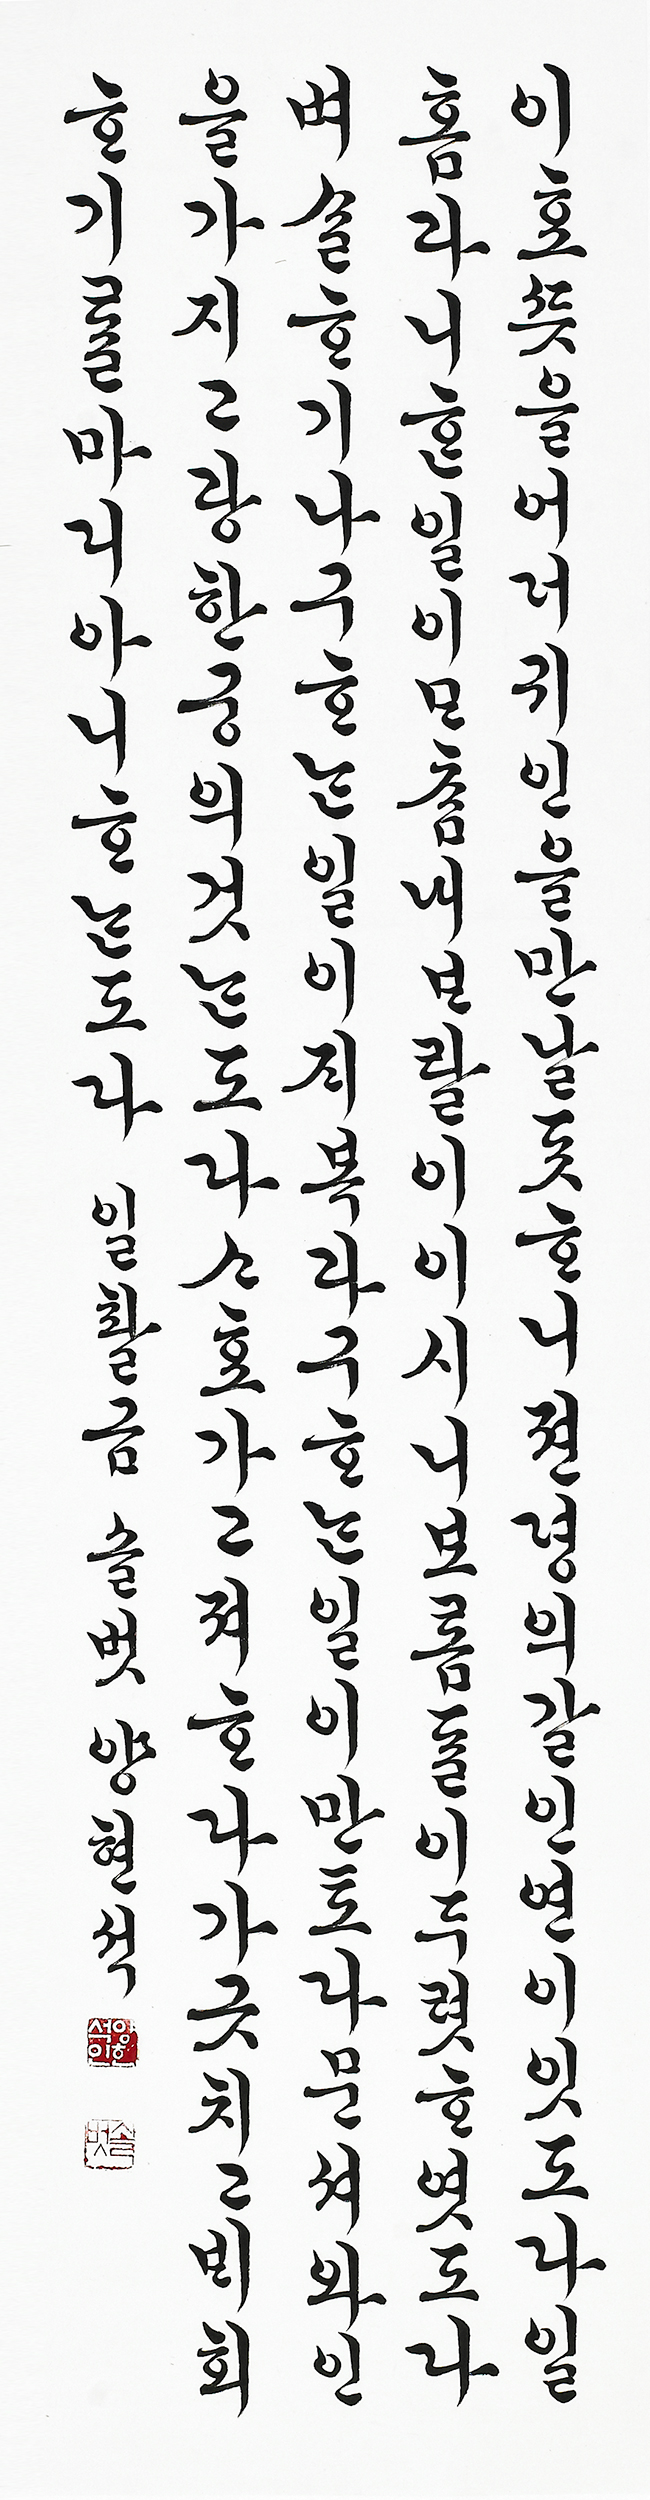 이효뜻을어더긔인을만날듯ᄒᆞ니젼졍의길인연이잇도다일
홈과니ᄒᆞᆫ일이ᄆᆞᄎᆞᆷ내보람이이시니보롬ᄃᆞᆯ이두렷ᄒᆞ엿도다
벼슬ᄒᆞ기나구ᄒᆞᄂᆞᆫ일이지복과구ᄒᆞᄂᆞᆫ일이만토다문셔와인
을가지고광한궁의것ᄂᆞᆫ도다ᄉᆞ호가고져ᄒᆞ다가긋치고비회
ᄒᆞ기ᄅᆞᆯ마지아니ᄒᆞᄂᆞᆫ도다 일활금 솔벗 양현석